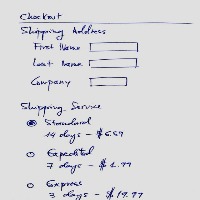 Checkout
Shipping Address
First Name
Last Name
Company
Shipping Service
Standard
14 days - $6.59
Expedited
7 days - $ 1.99
Express
3 days - $19.97